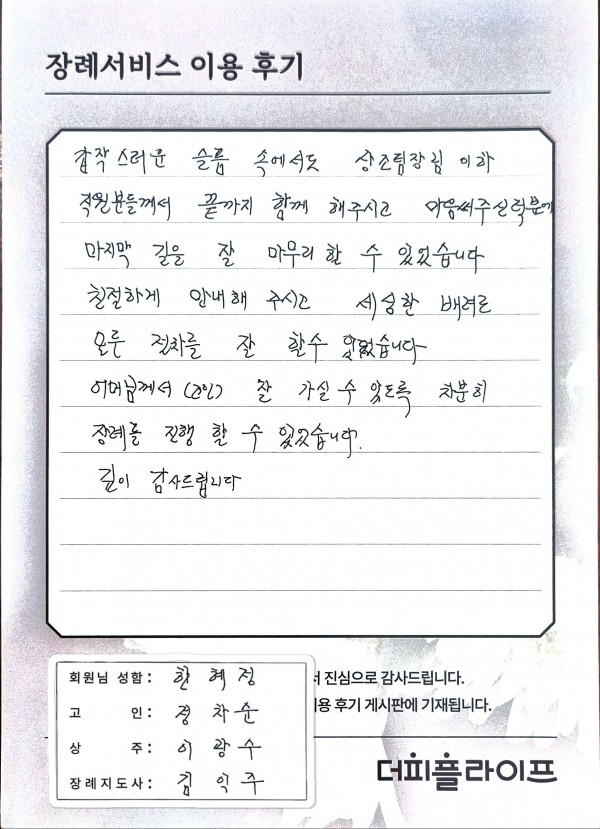 장례서비스 이용 후기
갑작스러운 슬픔 속에서도 상조팀장님 이하
직원분들께서 끝까지 함께 해주시고 마음써주신덕분에
마지막 길을 잘 마무리 할 수 있었습니다
친절하게 안내해 주시고 세심한 배려로
모든 절차를 잘 할수 있었습니다
어머님께서 (고인) 잘 가실 수 있도록 차분히
장례를 진행 할 수 있었습니다.
깊이 감사드립니다
회원님 성함 : 한혜정
고 인 : 정차순
상 주 : 이광수
장례지도사 : 김익주
서 진심으로 감사드립니다.
용 후기 게시판에 기재됩니다.
더피플라이프